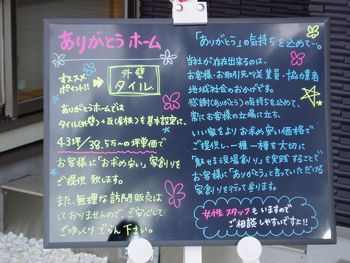 ありがとうホーム
オススメ
ポイント!!
外壁
タイル
ありがとうホームでは
タイル(外壁)+瓦(屋根)を基本設定に、
43坪/38.5万〜の坪単価で
お客様に「お求め安い」家創りを
ご提供致します。
また、無理な訪問販売は
しておりませんので、ご安心して
ごゆっくりごらん下さい。
「ありがとう」の気持ちを込めて…。
当社が存在出来るのは、
お客様・お取引先・従業員・協力業者
地域社会のおかげです。
感謝(ありがとう)の気持ちを込めて、
常にお客様の立場に立ち、
いい家をよりお求め安い価格で
ご提供し一棟一棟を大切に
「魅せる現場創り」を実践することで
お客様に「ありがとう」と言っていただける
家創りを行って参ります。
女性スタッフもいますので
ご相談しやすいですよ!!